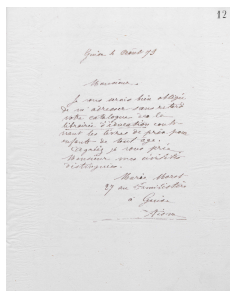 12
Guise 4 Août 91
Monsieur
Je vous serais bien obligée
de m'adresser sans retard
votre catalogue de
librairie d'éducation conte-
nant les livres de prix pour
enfants de tout âge.
Agréez je vous prie
Monsieur mes civilités
distinguées.
Marie Moret
à Guise
Aisne